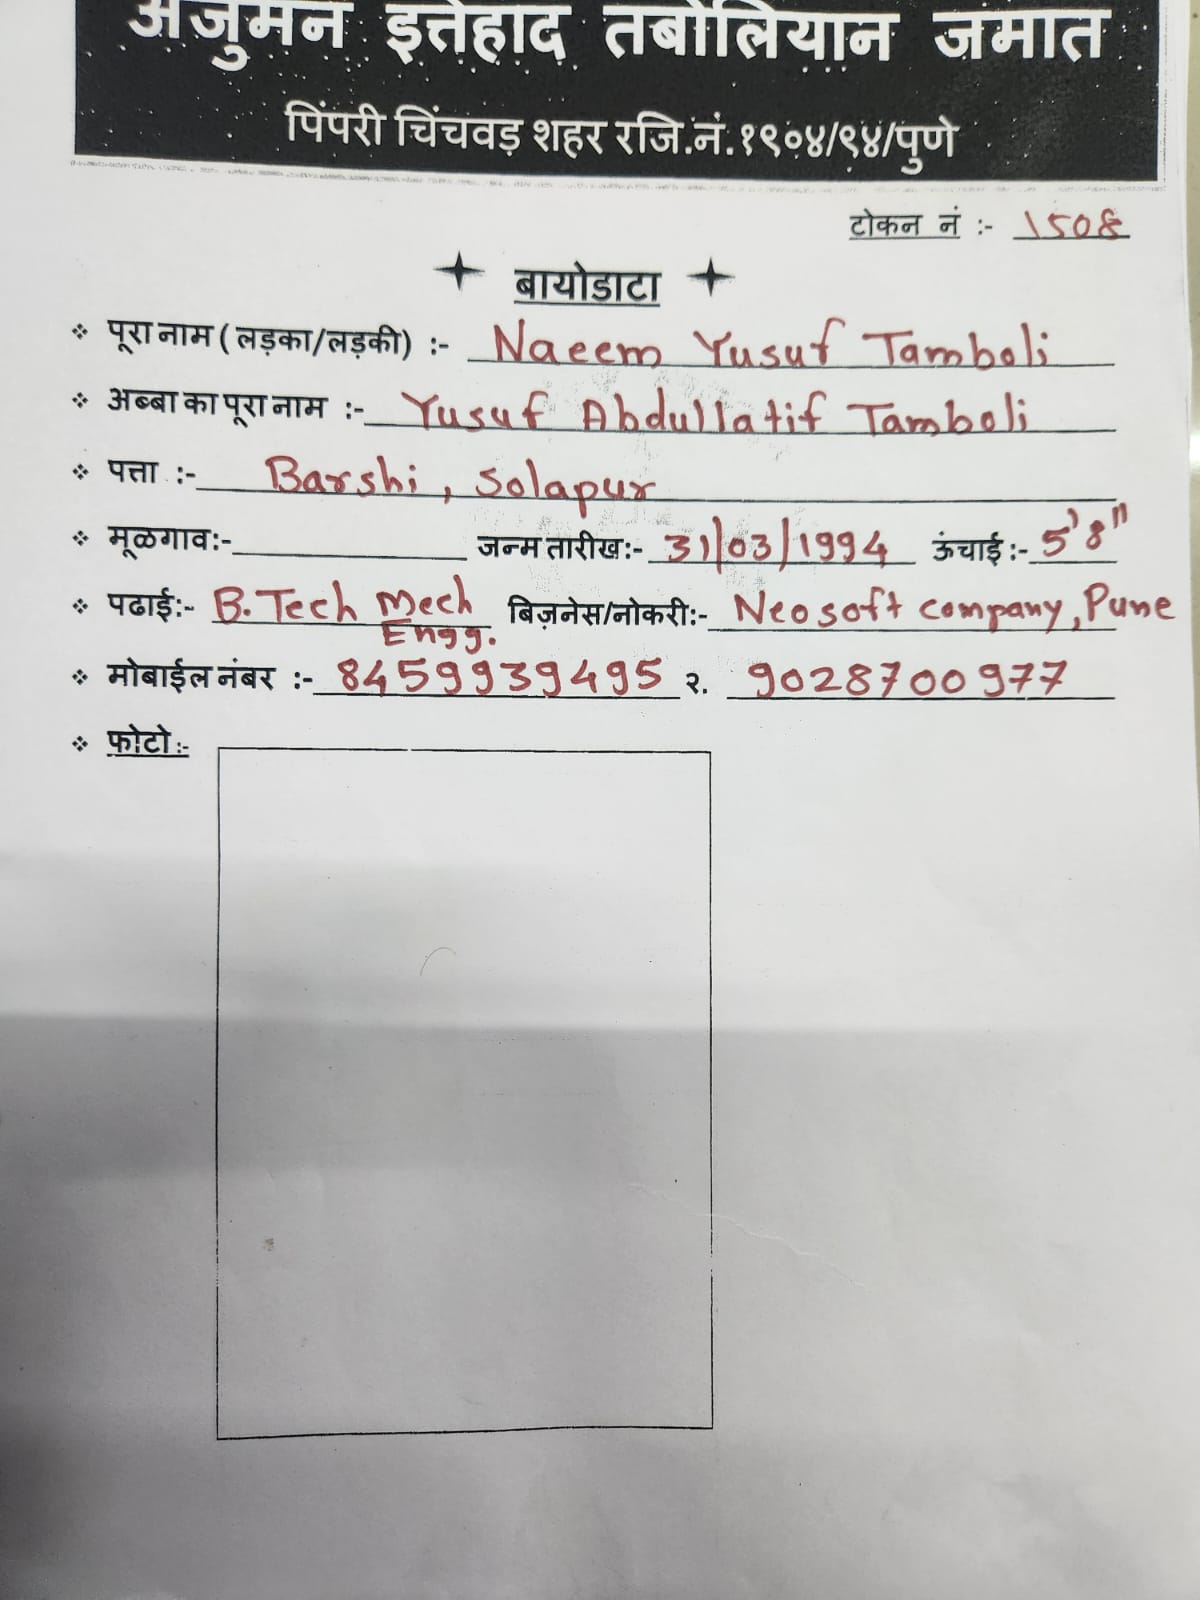 अंजुमन इत्तेहाद तंबोलियान जमात
पिंपरी चिंचवड़ शहर रजि.नं.१९०४/९४/पुणे
टोकन नं :- 1508
बायोडाटा
पूरा नाम ( लड़का/लड़की) :- Naeem Yusuf Tamboli
अब्बा का पूरा नाम :- Yusuf Abdullatif Tamboli
पत्ता :- Barshi, Solapur
मूळगाव:- जन्म तारीख:- 31/03/1994 ऊंचाई:- 5'8"
पढाई:- B.Tech Mech Engg. बिज़नेस/नोकरी:- Neosoft company, Pune
मोबाईल नंबर :- 8459939495 २. 9028700977
फोटो:-